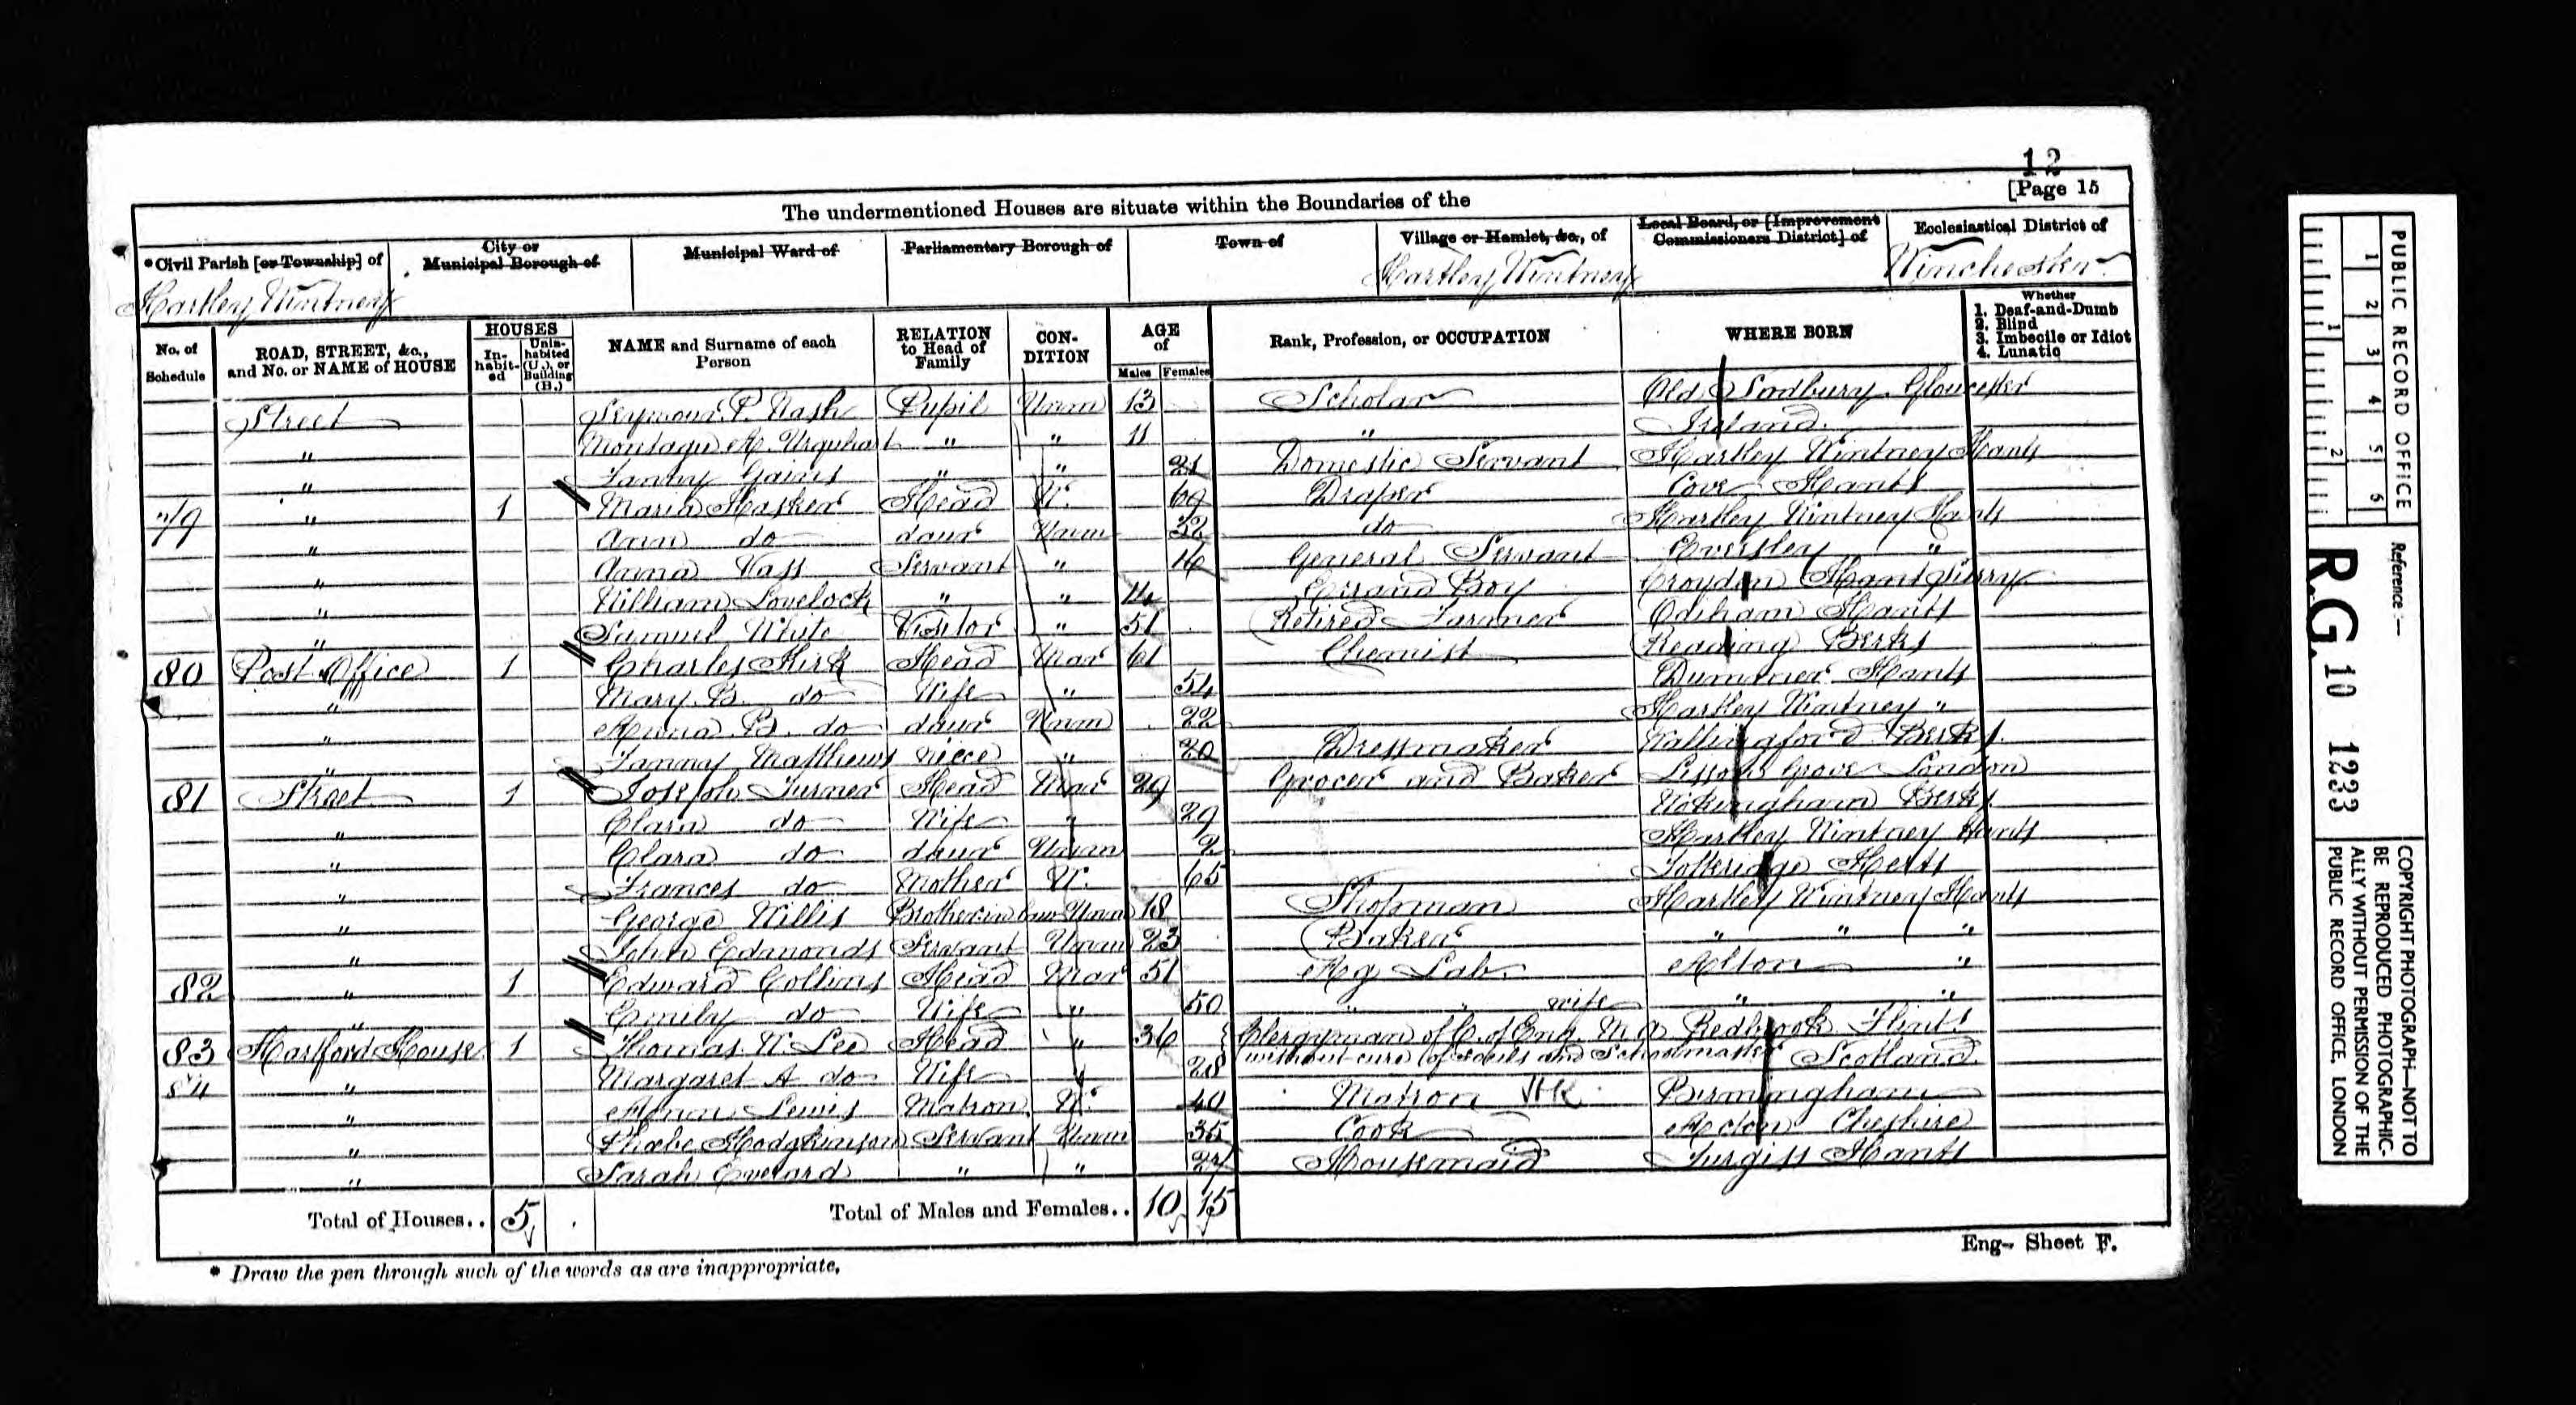 12
[Page 15
The undermentioned Houses are situate within the Boundaries of the
*Civil Parish [or Township] of City or Municipal Borough of Municipal Ward of Parliamentary Borough of Town of Village or Hamlet, &c., of Local Board, or [Improvement Commissioners District] of Ecclesiastical District of
Hartley Wintney Hartley Wintney Winchester
No. of Schedule ROAD, STREET, &c., and No. or NAME of HOUSE HOUSES Inhabited Uninhabited (U.), or Building (B.) NAME and Surname of each Person RELATION to Head of Family CONDITION AGE of Males Females Rank, Profession, or OCCUPATION WHERE BORN Whether 1. Deaf-and-Dumb 2. Blind 3. Imbecile or Idiot 4. Lunatic
Street Seymour P. Nash Pupil Unm 13 Scholar Old Sodbury Gloucester
" Montagu Urquhart " " 11 " Ireland
" Fanny Gaines " " 21 Domestic Servant Hartley Wintney Hants
79 " 1 Maria Head W. 69 Draper Cove Hants
" Ann do daur Unm 32 do Hartley Wintney Hants
" Anna Vass Servant " 16 General Servant Eversley "
" William Lovelock " " 14 Errand Boy Croydon Hants Surry
" Samuel White Visitor " 51 Retired Farmer Odiham Hants
80 Post Office 1 Charles Kirk Head Mar 61 Chemist Reading Berks
" Mary B. do Wife " 54 Dummer Hants
" B. do daur Unm 22 Hartley Wintney "
" Fanny Matthews niece " 20 Dressmaker Wallingford Berks
81 Street 1 Joseph Turner Head Mar 29 Grocer and Baker Lisson Grove London
" Clara do Wife " 29 Wokingham Berks
" Clara do daur Unm 2 Hartley Wintney Hants
" Frances do Mother W. 65 Totteridge Herts
" George Willis Brother in law Unm 18 Shopman Hartley Wintney Hants
" John Edmonds Servant Unm 23 Baker " " "
82 " 1 Edward Collins Head Mar 51 Ag Lab Alton "
" Emily do Wife " 50 " " wife " "
83 Hartford House 1 Thomas W. Lee Head " 36 Clergyman of C. of Eng. M A Redbrook Flints
84 " Margaret A do Wife " 28 without cure of souls and Schoolmaster Scotland
" Lewis Matron W. 40 Matron Birmingham
" Phoebe Hodgkinson Servant Unm 35 Cook Acton Cheshire
" Sarah Everard " " 27 Housemaid Turgiss Hants
Total of Houses.. 5 Total of Males and Females.. 10 15
* Draw the pen through such of the words as are inappropriate.
Eng.- Sheet F.
PUBLIC RECORD OFFICE
1 2 3 4 5 6
1 2
Reference :-
R.G. 10 1233
COPYRIGHT PHOTOGRAPH—NOT TO BE REPRODUCED PHOTOGRAPHICALLY WITHOUT PERMISSION OF THE PUBLIC RECORD OFFICE, LONDON